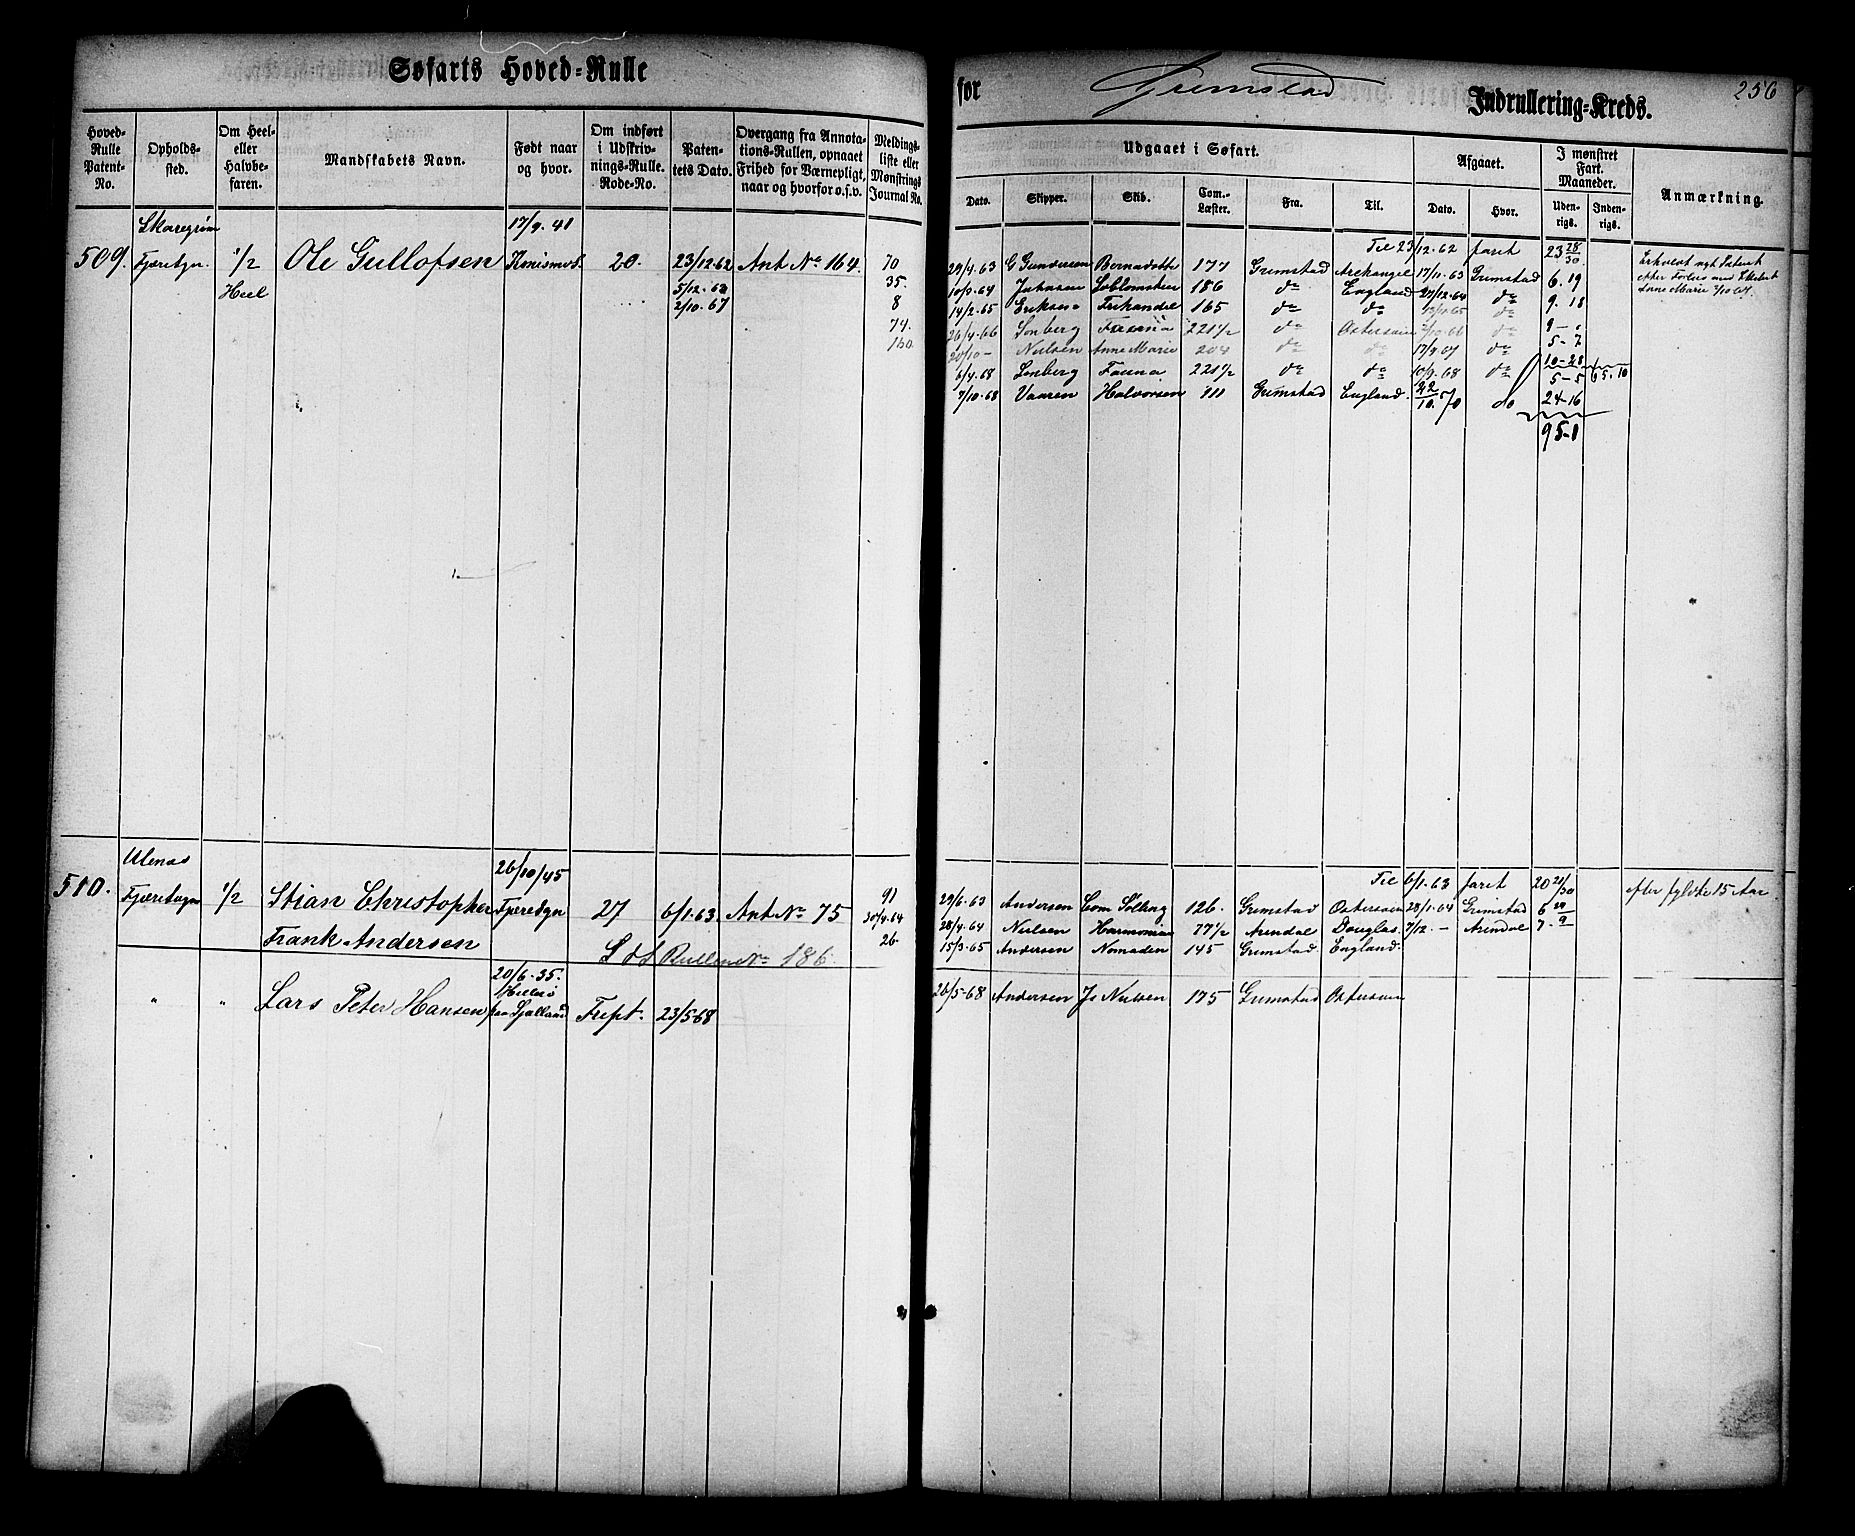 Søfarts Hoved-Rulle
for Grimstad Indrullering-Kreds. 256
Hoved-Rulle Patent-No.
Opholds-sted.
Om Heel- eller Halvbe-faren.
Mandskabets Navn.
Født naar og hvor.
Om indført i Udskriv-nings-Rulle. Rode-No.
Paten-tets Dato.
Overgang fra Annota-tions-Rullen, opnaaet Frihed for Værnepligt, naar og hvorfor o.s.v.
Meldings-liste eller Mønstrings Journal No.
Udgaaet i Søfart.
Dato. Skipper. Skib. Com.-Læster. Fra. Til.
Afgaaet.
Dato. Hvor.
I mønstret Fart. Maaneder.
Uden-rigs. Inden-rigs.
Anmærkning
17/9. 41
509. Fjæresogn 1/2 Ole Gullofsen 20. 23/12.62 Ant No 164. 70
Heel 5/12. 63 35.
2/10. 67 8
74.
160
Til 23/12.62 faret 23 28/30
29/4.63 G Gundersen Bernadotte 177 Grimstad Archangel 17/11.63 Grimstad 6. 19
10/3.64 186 do England 27/12.64 do 9. 18
14/2.65 Eriksen 165 do do do 9-
26/4.66 Lonberg Fauna 221 1/2 do Østersøen do 5-7
20/10- Nielsen Anne Marie 204 do do 17/9.67 do 10-28
6/4.68 Lonberg Fauna 221 1/2 do do 10/9.68 do 5-5
7/10.68 Vaaren Halvorsen 111 Grimstad England. 22/10.70 do 24-16
95-1
26/10/45
510. Fjæresogn 1/2 Stian Christopher Fjæresogn 27 6/1.63. Ant No 75 91
Frank Andersen S d S Rullens No 186 30/4.64
26
Til 6/1.63 faret 20 21/30 efter fyldte 15 Aar
29/6.63 Andersen 126. Grimstad Østersøen 28/1.64 Grimstad 6
28/4.64 Nielsen Harmonien 77 1/2 Arendal Douglas 7/12.- Arendal 7.
15/3.65 Andersen Nomaden 145 Grimstad England.
20/6.35.
" " Lars Peter Hansen paa Sjælland Fript. 23/5.68
26/5-68 Andersen Js Nielsen 175 Grimstad Østersøen